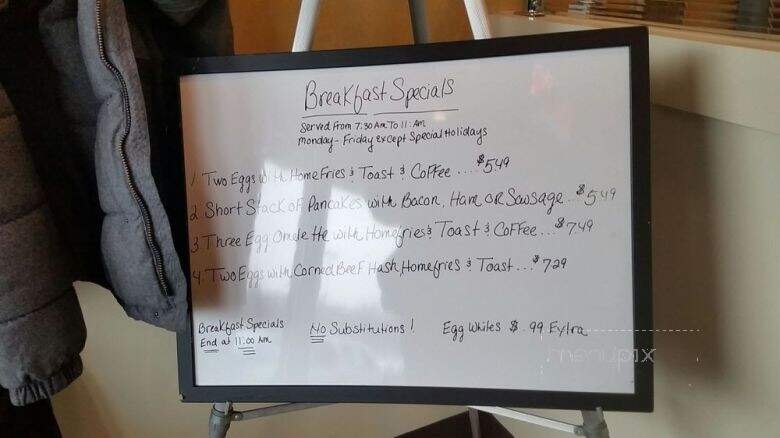 Breakfast Specials
Served From 7:30 Am To 11: Am
Monday - Friday except Special Holidays
1. Two Eggs With Home Fries & Toast & Coffee .... $5.49
2 Short Stack of Pancakes with Bacon, Ham or Sausage .. $5.49
3 Three Egg Omelette with Homefries & Toast & Coffee ... $7.49
4. Two Eggs with Corned Beef Hash, Homefries & Toast ... $7.29
Breakfast Specials No Substitutions! Egg Whites $.99 Extra
End at 11:00 Am